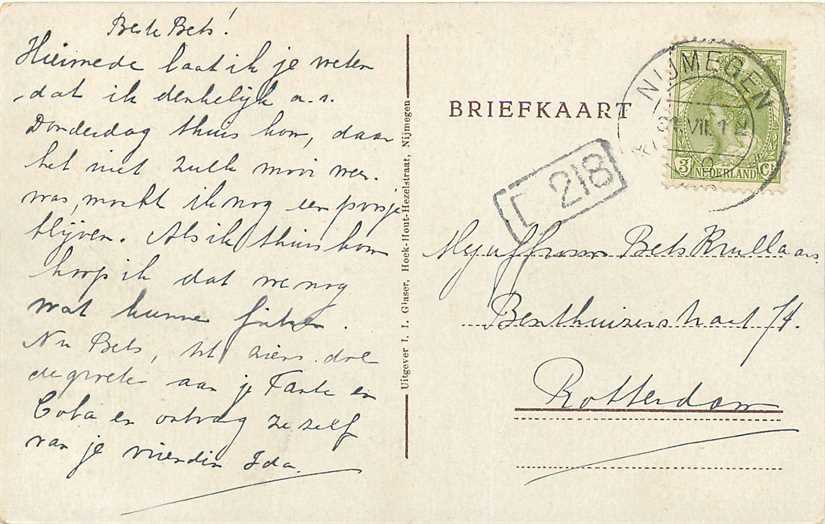 Beste Bets!
Hiermede laat ik je weten
dat ik denkelijk a.s.
Donderdag thuis kom, daar
het niet zulk mooi weer
was, mocht ik nog een poosje
blijven. Als ik thuis kom
hoop ik dat we nog
wat kunnen fietsen.
Nu Bets, tot ziens, doe
de groete aan je Tante en
Coba en ontvang ze zelf
van je vriendin Ida.
Uitgever I. I. Glaser, Hoek-Hout-Hezelstraat, Nijmegen
BRIEFKAART
NIJMEGEN
VII. 1
3 Ct
NEDERLAND
218
Mejuffrouw Bets Krullaars
Benthuizerstraat 74
Rotterdam